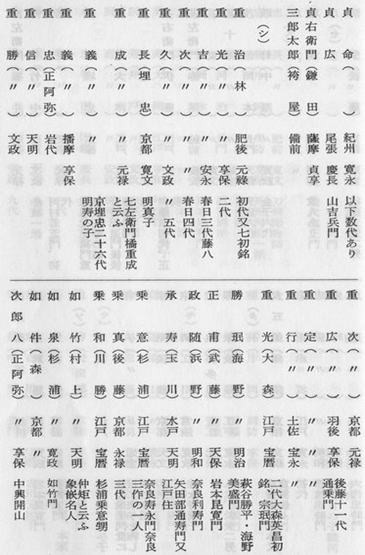 貞命(〃) 紀州 寛永 以下数代あり
貞広(〃) 尾張 慶長 山吉兵門
貞右衛門(鎌田) 薩摩 貞享
三郎太郎(袴屋) 備前
(シ)
重治(林) 肥後 元禄 初代又七初銘
重光(〃) 〃 享保 二代
重吉(〃) 〃 安永 春日三代藤八
重次(〃) 〃 〃 春日四代
重久(〃) 〃 文政 〃 五代
重長(埋忠) 京都 寛文 明真子
重成(〃) 〃 元禄 七左衛門橘重成と云ふ
重義(〃) 〃 京埋忠二十六代明寿の子
重義(〃) 播摩 享保
重忠(正阿弥) 岩代
重信(〃) 〃 天明
重勝(〃) 〃 文政
重次(〃) 京都 元禄
重広(〃) 羽後 享保 後藤十一代通乗門
重定(〃) 〃 〃
重行(〃) 土佐 宝永
重光(大森) 江戸 宝暦 二代大森英昌初銘、宗珉門
勝珉(海野) 〃 明治 萩谷勝平・海野美盛門
正甫(武野) 〃 天保 岩本昆寛門
政随(浜野) 〃 明和 奈良利寿門
承寿(玉川) 水戸 天明 矢田部通寿門又江戸住
乗意(杉浦) 江戸 宝暦 奈良寿永門奈良三作の一人
乗真(後藤) 京都 永禄 三代
乗和(川勝) 江戸 宝暦 杉浦乗意甥
如竹(村上) 〃 天明 仲矩と云ふ象嵌名人
如泉(杉浦) 〃 寛政 如竹門
如件(森) 京都 〃
次郎八(正阿弥) 〃 享保 中興開山